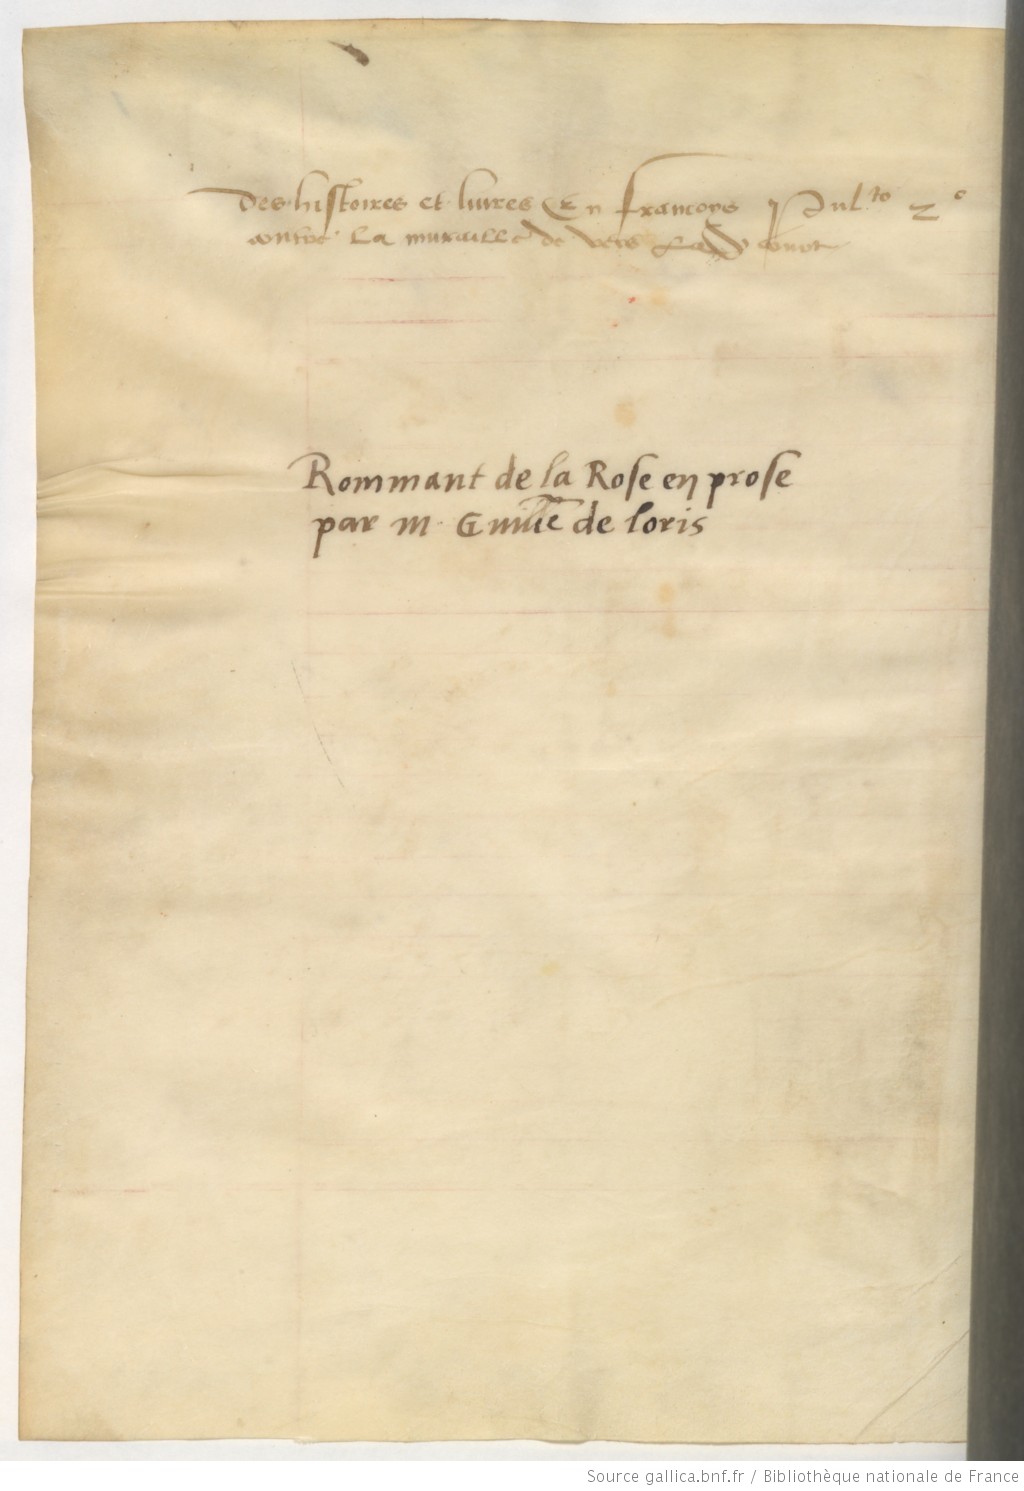 Des histoires et livres En francoys Pul.to 2o
contre la muraille de vers la court
Rommant de la Rose en prose
par m. Guille de loris
Source gallica.bnf.fr / Bibliothèque nationale de France